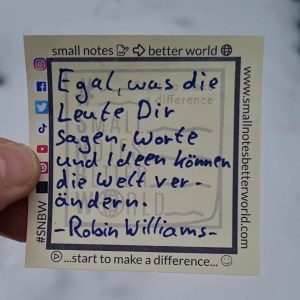 small notes → better world
Egal, was die
Leute Dir
sagen, Worte
und Ideen können
die Welt ver-
ändern.
-Robin Williams-
...start to make a difference...
#SNBW
www.smallnotesbetterworld.com
difference
SMALL
WORLD